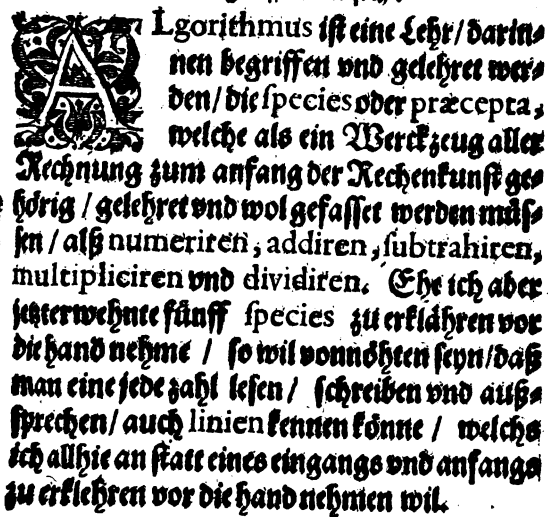 ALgorithmus ist eine Lehr/ darin-
nen begriffen vnd gelehret wer-
den/ die species oder præcepta,
welche als ein Werckzeug aller
Rechnung zum anfang der Rechenkunst ge-
hörig / gelehret vnd wol gefasset werden müs-
sen / alß numeriren, addiren, subtrahiren,
multipliciren vnd dividiren. Ehe ich aber
jetzterwehnte fünff species zu erklähren vor
die hand nehme / so wil vonnöhten seyn/ daß
man eine jede zahl lesen / schreiben vnd auß-
sprechen/ auch linien kennen könne / welchs
ich allhie an statt eines eingangs vnd anfangs
zu erklehren vor die hand nehmen wil.